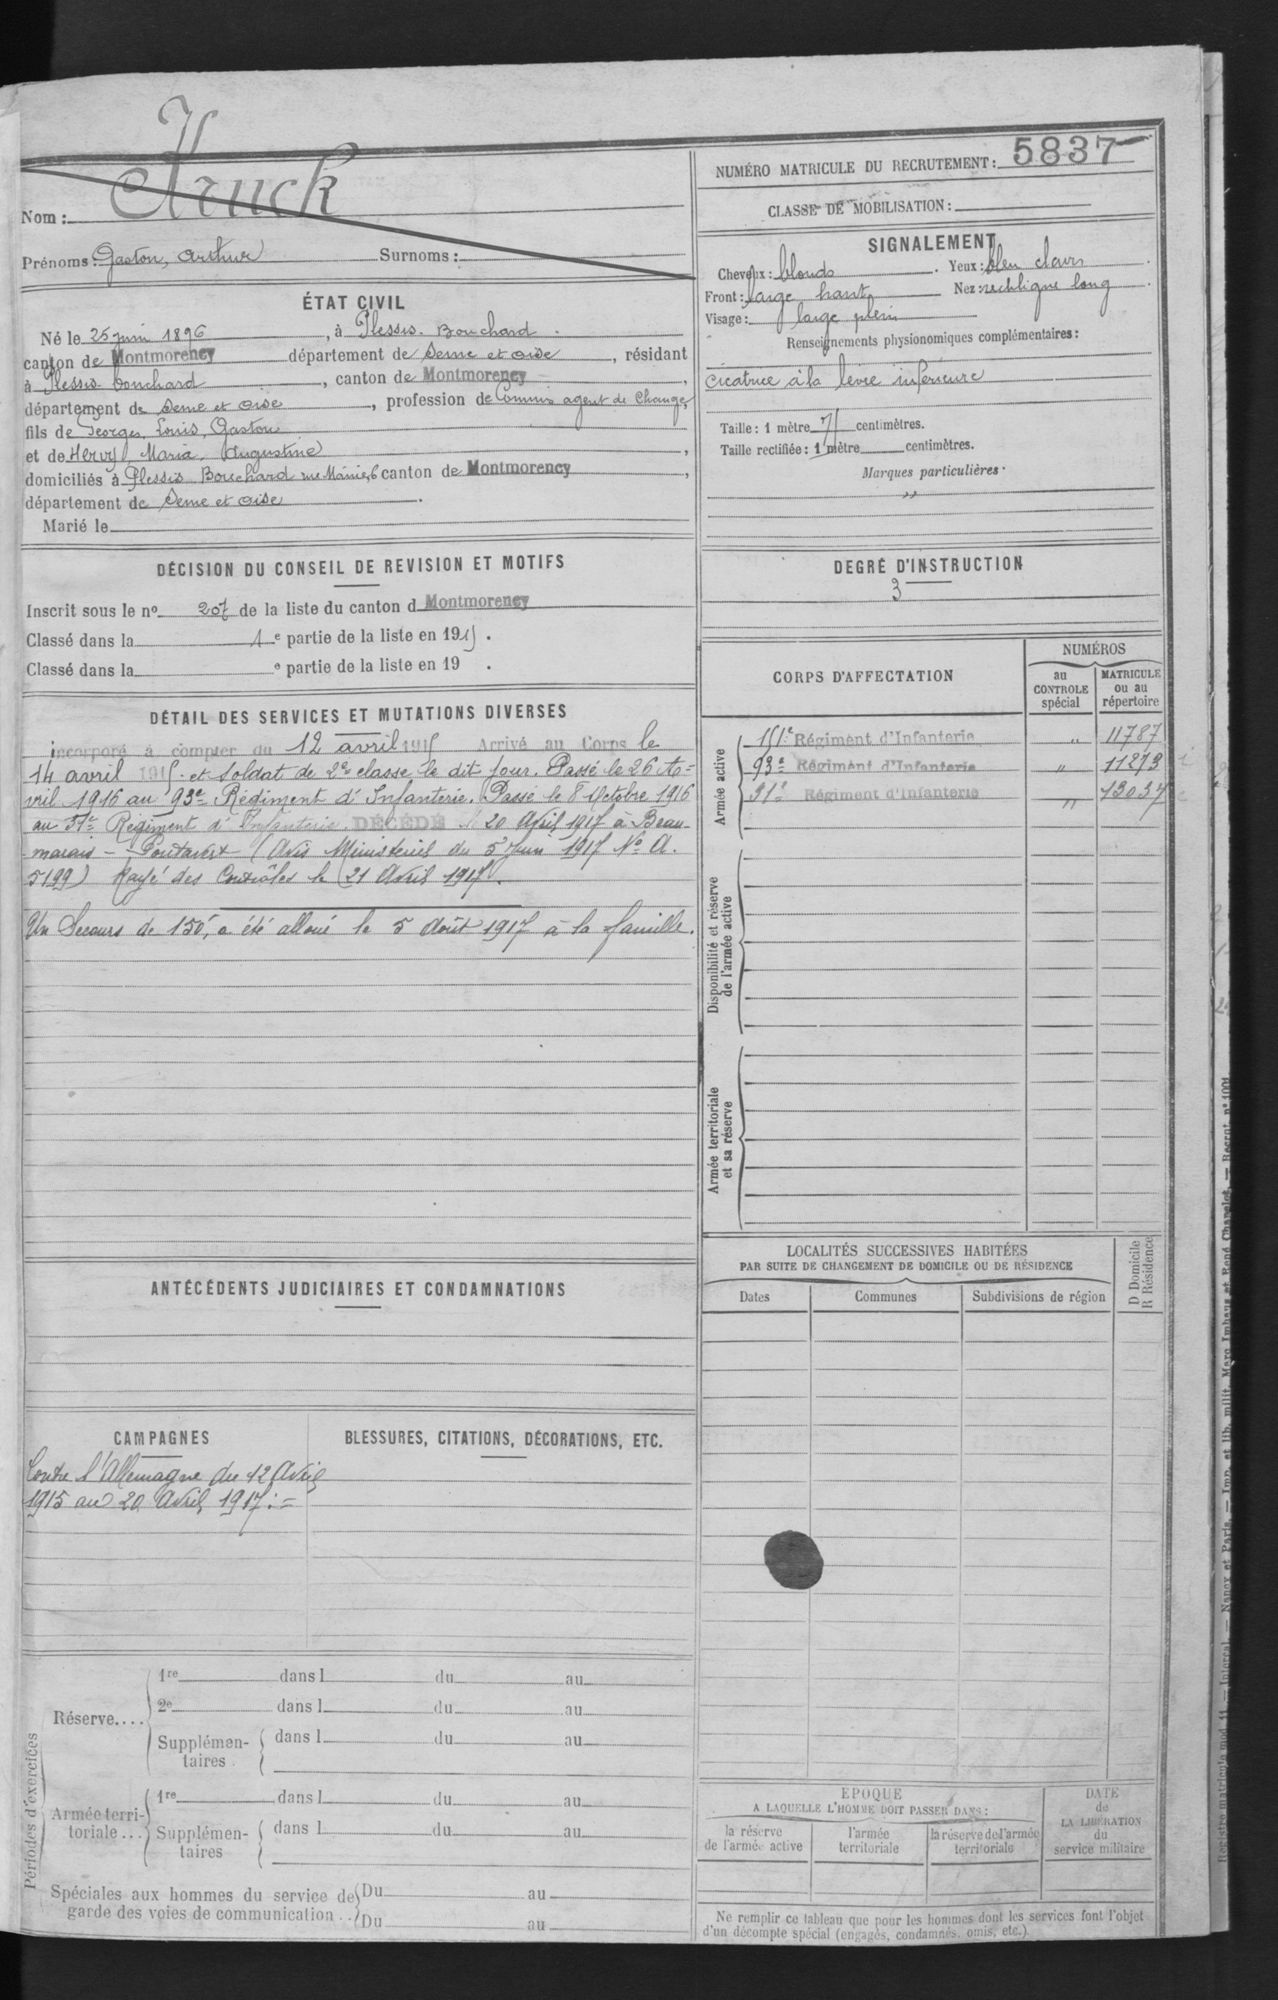 Nom : Kruck
Prénoms : Gaston, Arthur Surnoms :
ÉTAT CIVIL
Né le 25 juin 1896, à Plessis-Bouchard.
canton de Montmorency département de Seine et oise, résidant
à Plessis bouchard, canton de Montmorency,
département de Seine et oise, profession de Commis agent de Change,
fils de Georges, Louis, Gaston
et de Hervy, Maria, Augustine,
domiciliés à Plessis Bouchard rue Mairie, 6 canton de Montmorency,
département de Seine et oise.
Marié le
DÉCISION DU CONSEIL DE REVISION ET MOTIFS
Inscrit sous le no 207 de la liste du canton d Montmorency
Classé dans la 1e partie de la liste en 1915.
Classé dans la e partie de la liste en 19 .
DÉTAIL DES SERVICES ET MUTATIONS DIVERSES
incorporé à compter du 12 avril 1915 Arrivé au Corps le
14 avril 1915. et Soldat de 2e classe le dit jour. Passé le 26 A=
vril 1916 au 93e Régiment d'Infanterie. Passé le 8 Octobre 1916
au 31e Régiment d'Infanterie. DÉCÉDÉ le 20 Avril 1917 à Beau-
marais - Pontavert (Avis Ministériel du 5 Juin 1917 No A.
5199) Rayé des Contrôles le 21 Avril 1917.
Un Secours de 150f, a été alloué le 5 Août 1917 à la famille.
ANTÉCÉDENTS JUDICIAIRES ET CONDAMNATIONS
CAMPAGNES
Contre l'Allemagne du 12 Avril
1915 au 20 Avril 1917.=
BLESSURES, CITATIONS, DÉCORATIONS, ETC.
Périodes d'exercices
Réserve....
1re dans l du au
2e dans l du au
Supplémen-
taires.
dans l du au
Armée terri-
toriale...
1re dans l du au
Supplémen-
taires
dans l du au
Spéciales aux hommes du service de
garde des voies de communication..
Du au
Du au
NUMÉRO MATRICULE DU RECRUTEMENT : 5837
CLASSE DE MOBILISATION :
SIGNALEMENT
Cheveux : blonds. Yeux : bleu clairs.
Front : large haut Nez : rectiligne long.
Visage : large plein
Renseignements physionomiques complémentaires :
Cicatrice à la lèvre inférieure
Taille : 1 mètre 71 centimètres.
Taille rectifiée : 1 mètre centimètres.
Marques particulières.
"
DEGRÉ D'INSTRUCTION
3
CORPS D'AFFECTATION
NUMÉROS
au
CONTROLE
spécial
MATRICULE
ou au
répertoire
Armée active
151e Régiment d'Infanterie " 11787
93e Régiment d'Infanterie " 11273
31e Régiment d'Infanterie " 13037
Disponibilité et réserve
de l'armée active
Armée territoriale
et sa réserve
LOCALITÉS SUCCESSIVES HABITÉES
PAR SUITE DE CHANGEMENT DE DOMICILE OU DE RÉSIDENCE
D Domicile
R Résidence
Dates Communes Subdivisions de région
EPOQUE
A LAQUELLE L'HOMME DOIT PASSER DANS :
la réserve
de l'armée active
l'armée
territoriale
la réserve de l'armée
territoriale
DATE
de
LA LIBÉRATION
du
service militaire
Ne remplir ce tableau que pour les hommes dont les services font l'objet
d'un décompte spécial (engagés, condamnés, omis, etc.).